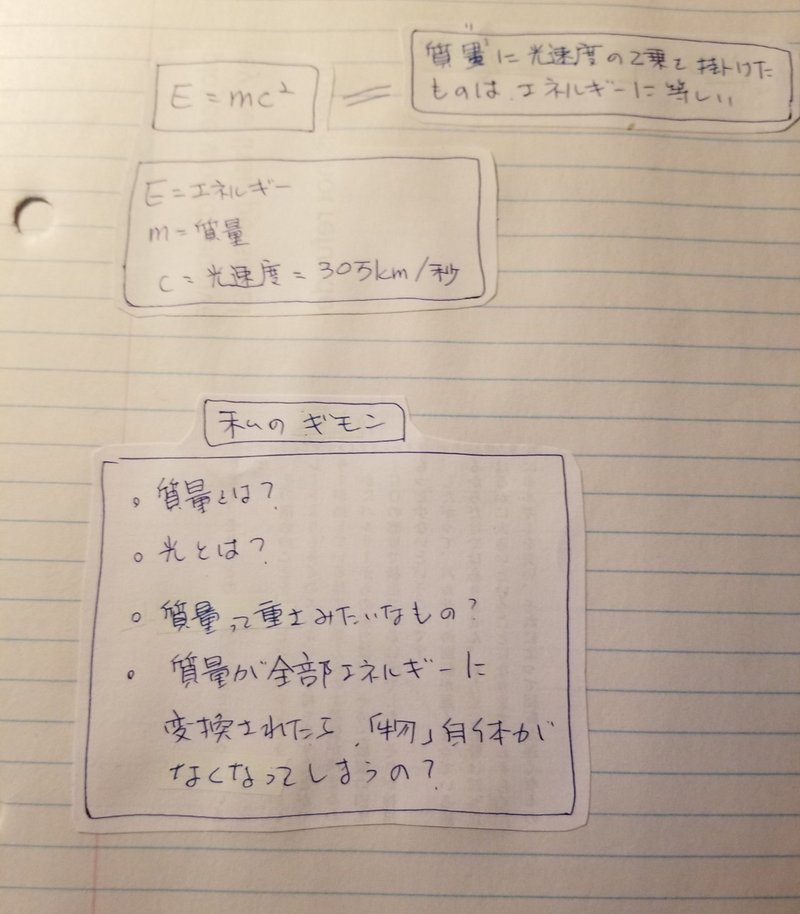 E = mc²
=
"質量"に光速度の2乗を掛けた
ものは、エネルギーに等しい
E = エネルギー
m = 質量
c = 光速度 = 30万km/秒
私のギモン
。質量とは?
。光とは?
。質量って重さみたいなもの?
。質量が全部エネルギーに
変換されたら、「物」自体が
なくなってしまうの?